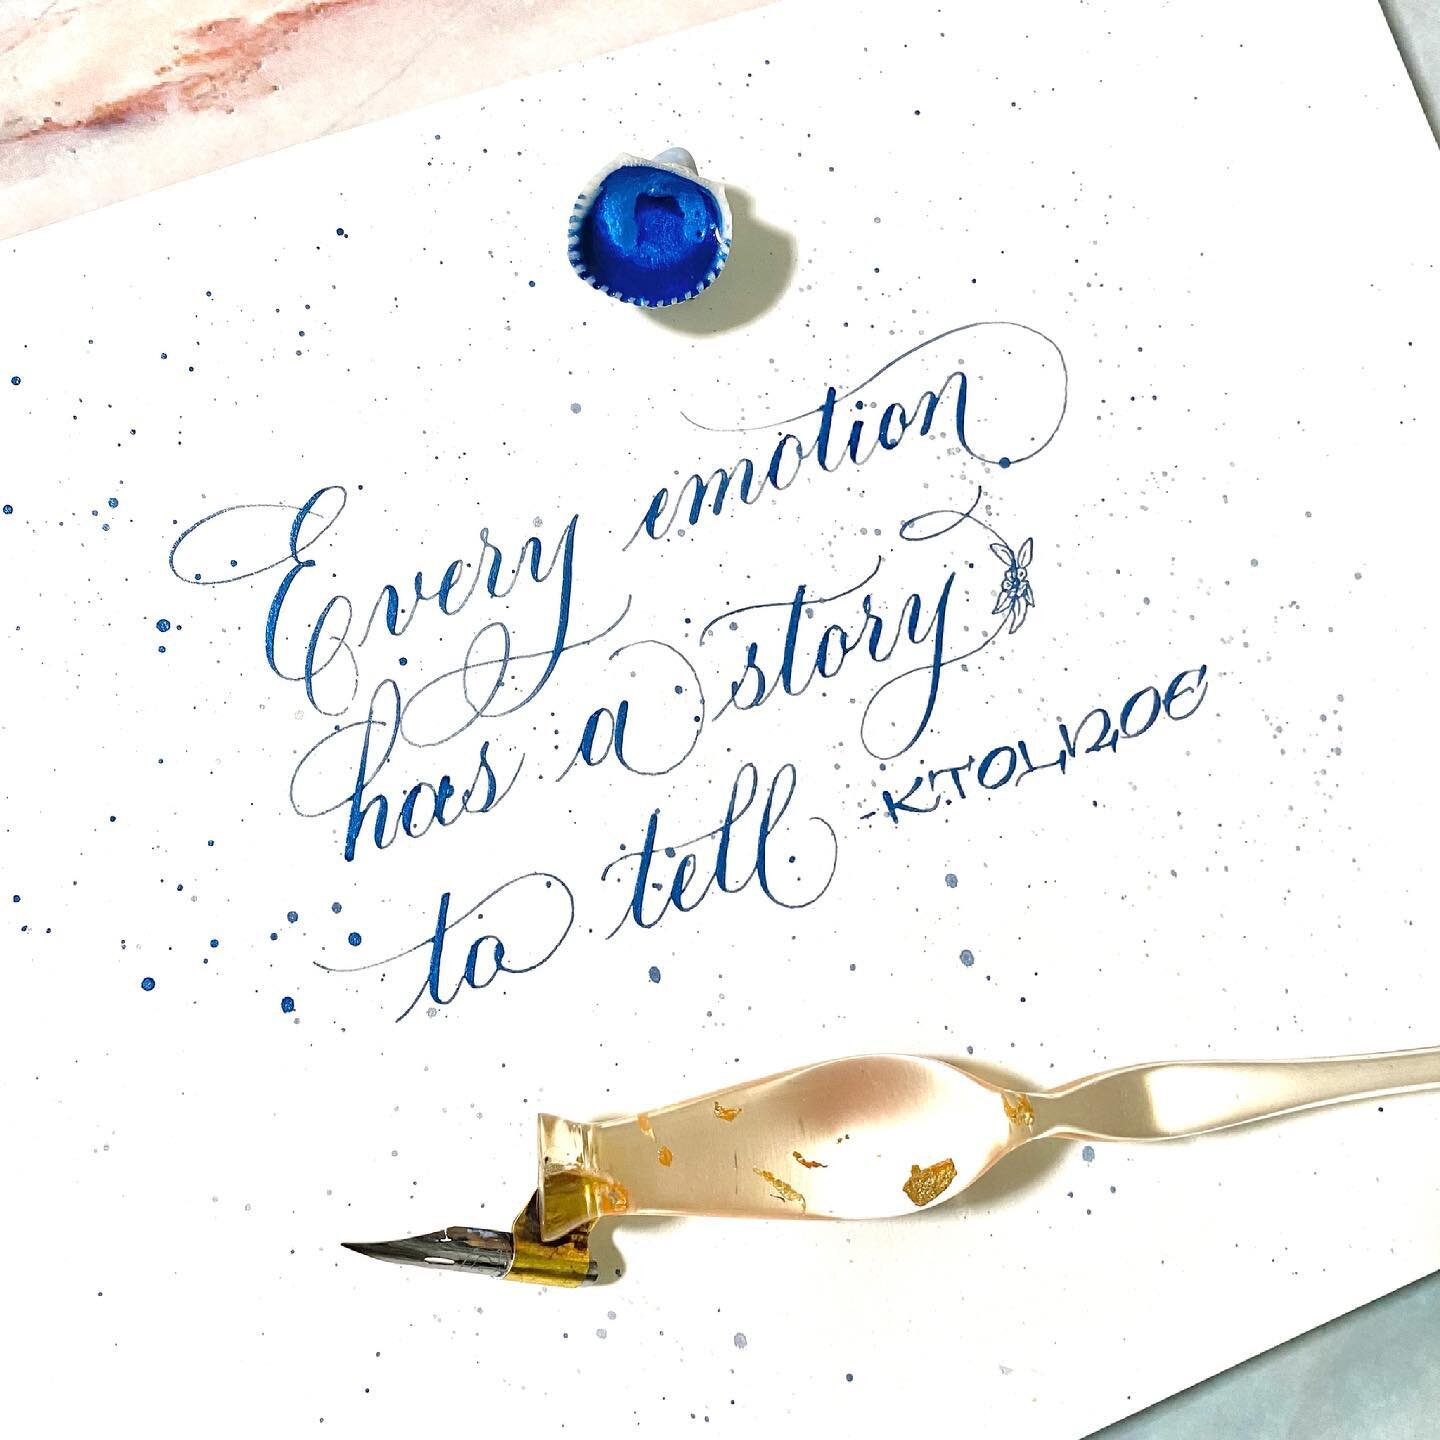 Every emotion
has a story
to tell
-K.TOLNOE